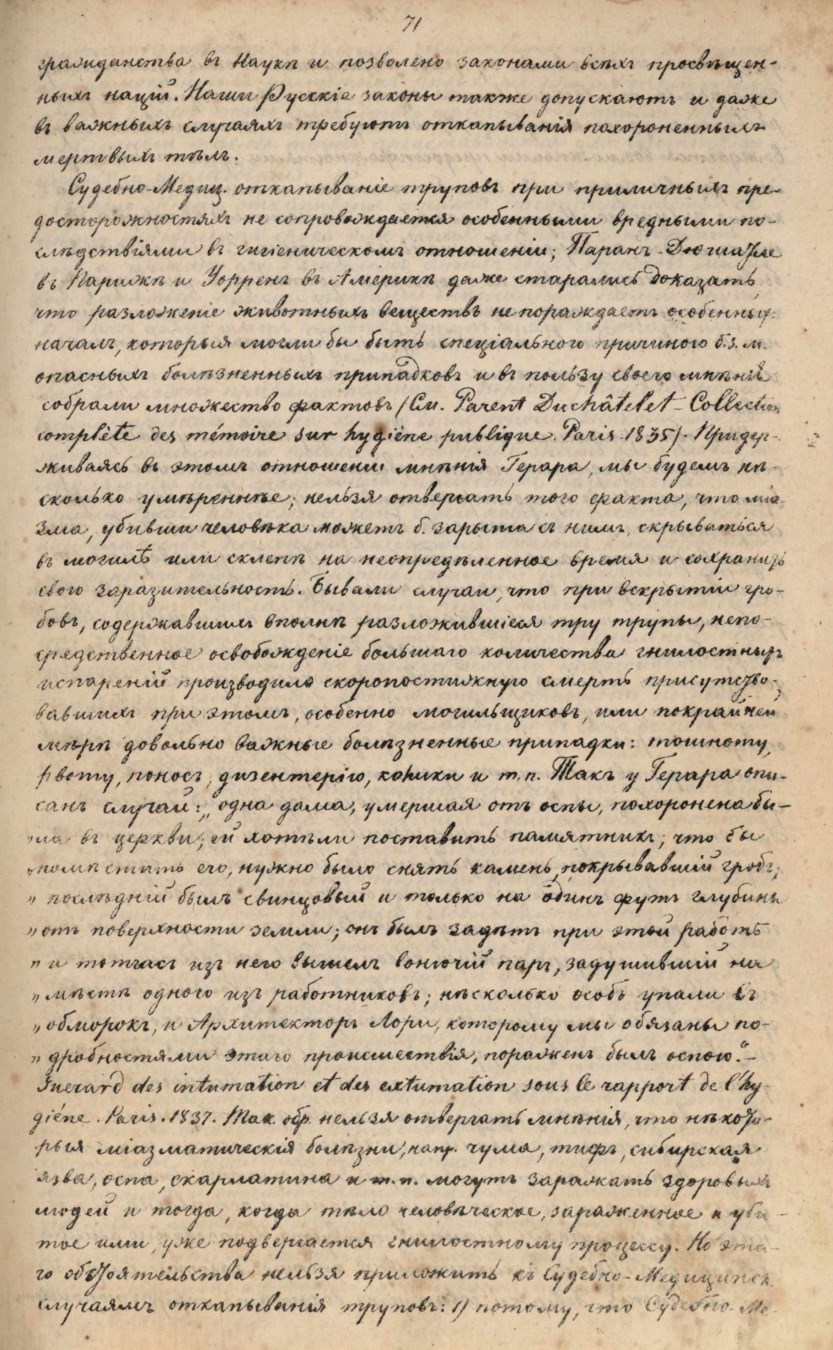 71
гражданства въ Наукѣ и позволено законами всѣхъ просвѣщен-
ныхъ націй. Наши Рускіе законы также допускаютъ и даже
въ важныхъ случаяхъ требуютъ откапыванія похороненныхъ
мертвыхъ тѣлъ.
Судебно-Медиц. откапываніе труповъ при приличныхъ пре-
досторожностяхъ не сопровождается особенными вредными по-
слѣдствіями въ гигіеническомъ отношеніи; Паранъ-Дюшатле
въ Парижѣ и Уорренъ въ Америкѣ даже старались доказать
что разложеніе животныхъ веществъ не пораждаетъ особенныхъ
началъ, которыя могли бы быть спеціальною причиною б. з. м.
опасныхъ болѣзненныхъ припадковъ и въ пользу своего мнѣнія
собрали множество фактовъ /См. Parent Duchâtelet - Collection
complète des mémoire sur hygiène publique. Paris 1835/. Придер-
живаясь въ этомъ отношеніи мнѣнія Герара, мы будемъ нѣ-
сколько умѣреннѣе; нельзя отвергать того факта, что міа-
зма, убивши человѣка можетъ б. зарыта съ нимъ, скрываться
въ могилѣ или склепѣ на неопредѣленное время и сохранить
свою заразительность. Бывали случаи, что при вскрытіи гро-
бовъ, содержавшихъ вполнѣ разложившіеся тру трупы, непо-
средственное освобожденіе большаго количества гнилостныхъ
испареній производило скоропостижную смерть присутство-
вавшихъ при этомъ, особенно могильщиковъ, или покрайней
мѣрѣ довольно важные болѣзненные припадки: тошноту,
рвоту, поносъ, дизентерію, колики и т. п. Такъ у Герара опи-
санъ случай: „одна дама, умершая отъ оспы, похоронена бы-
„ла въ церкви; ей хотѣли поставить памятникъ; что бы
„помѣстить его, нужно было снять камень, покрывавшій гробъ;
„послѣдній былъ свинцовый и только на одинъ футъ глубины
„отъ поверхности земли; онъ былъ задѣтъ при этой работѣ
„и тотчасъ изъ него вышелъ вонючій паръ, задушившій на
„мѣстѣ одного изъ работниковъ; нѣсколько особъ упали въ
„обморокъ, и Архитекторъ Лори, которому мы обязаны по-
„дробностями этаго происшествія, пораженъ былъ оспою.“ -
Guerard des intumation et des extumation sous le rapport de l'hy-
giéne. Paris. 1837. Так. обр. нельзя отвергать мнѣнія, что нѣкото-
рыя міазматическія болѣзни, напр. чума, тифъ, сибирская
язва, оспа, скарлатина и т. п. могутъ заражать здоровыхъ
людей и тогда, когда тѣло человѣческое, зараженное и уби-
тое ими, уже подвергается гнилостному процессу. Но это-
го обстоятельства нельзя приложить къ Судебно-Медицинск.
случаямъ откапыванія труповъ: 1) потому, что Судебно-Ме-